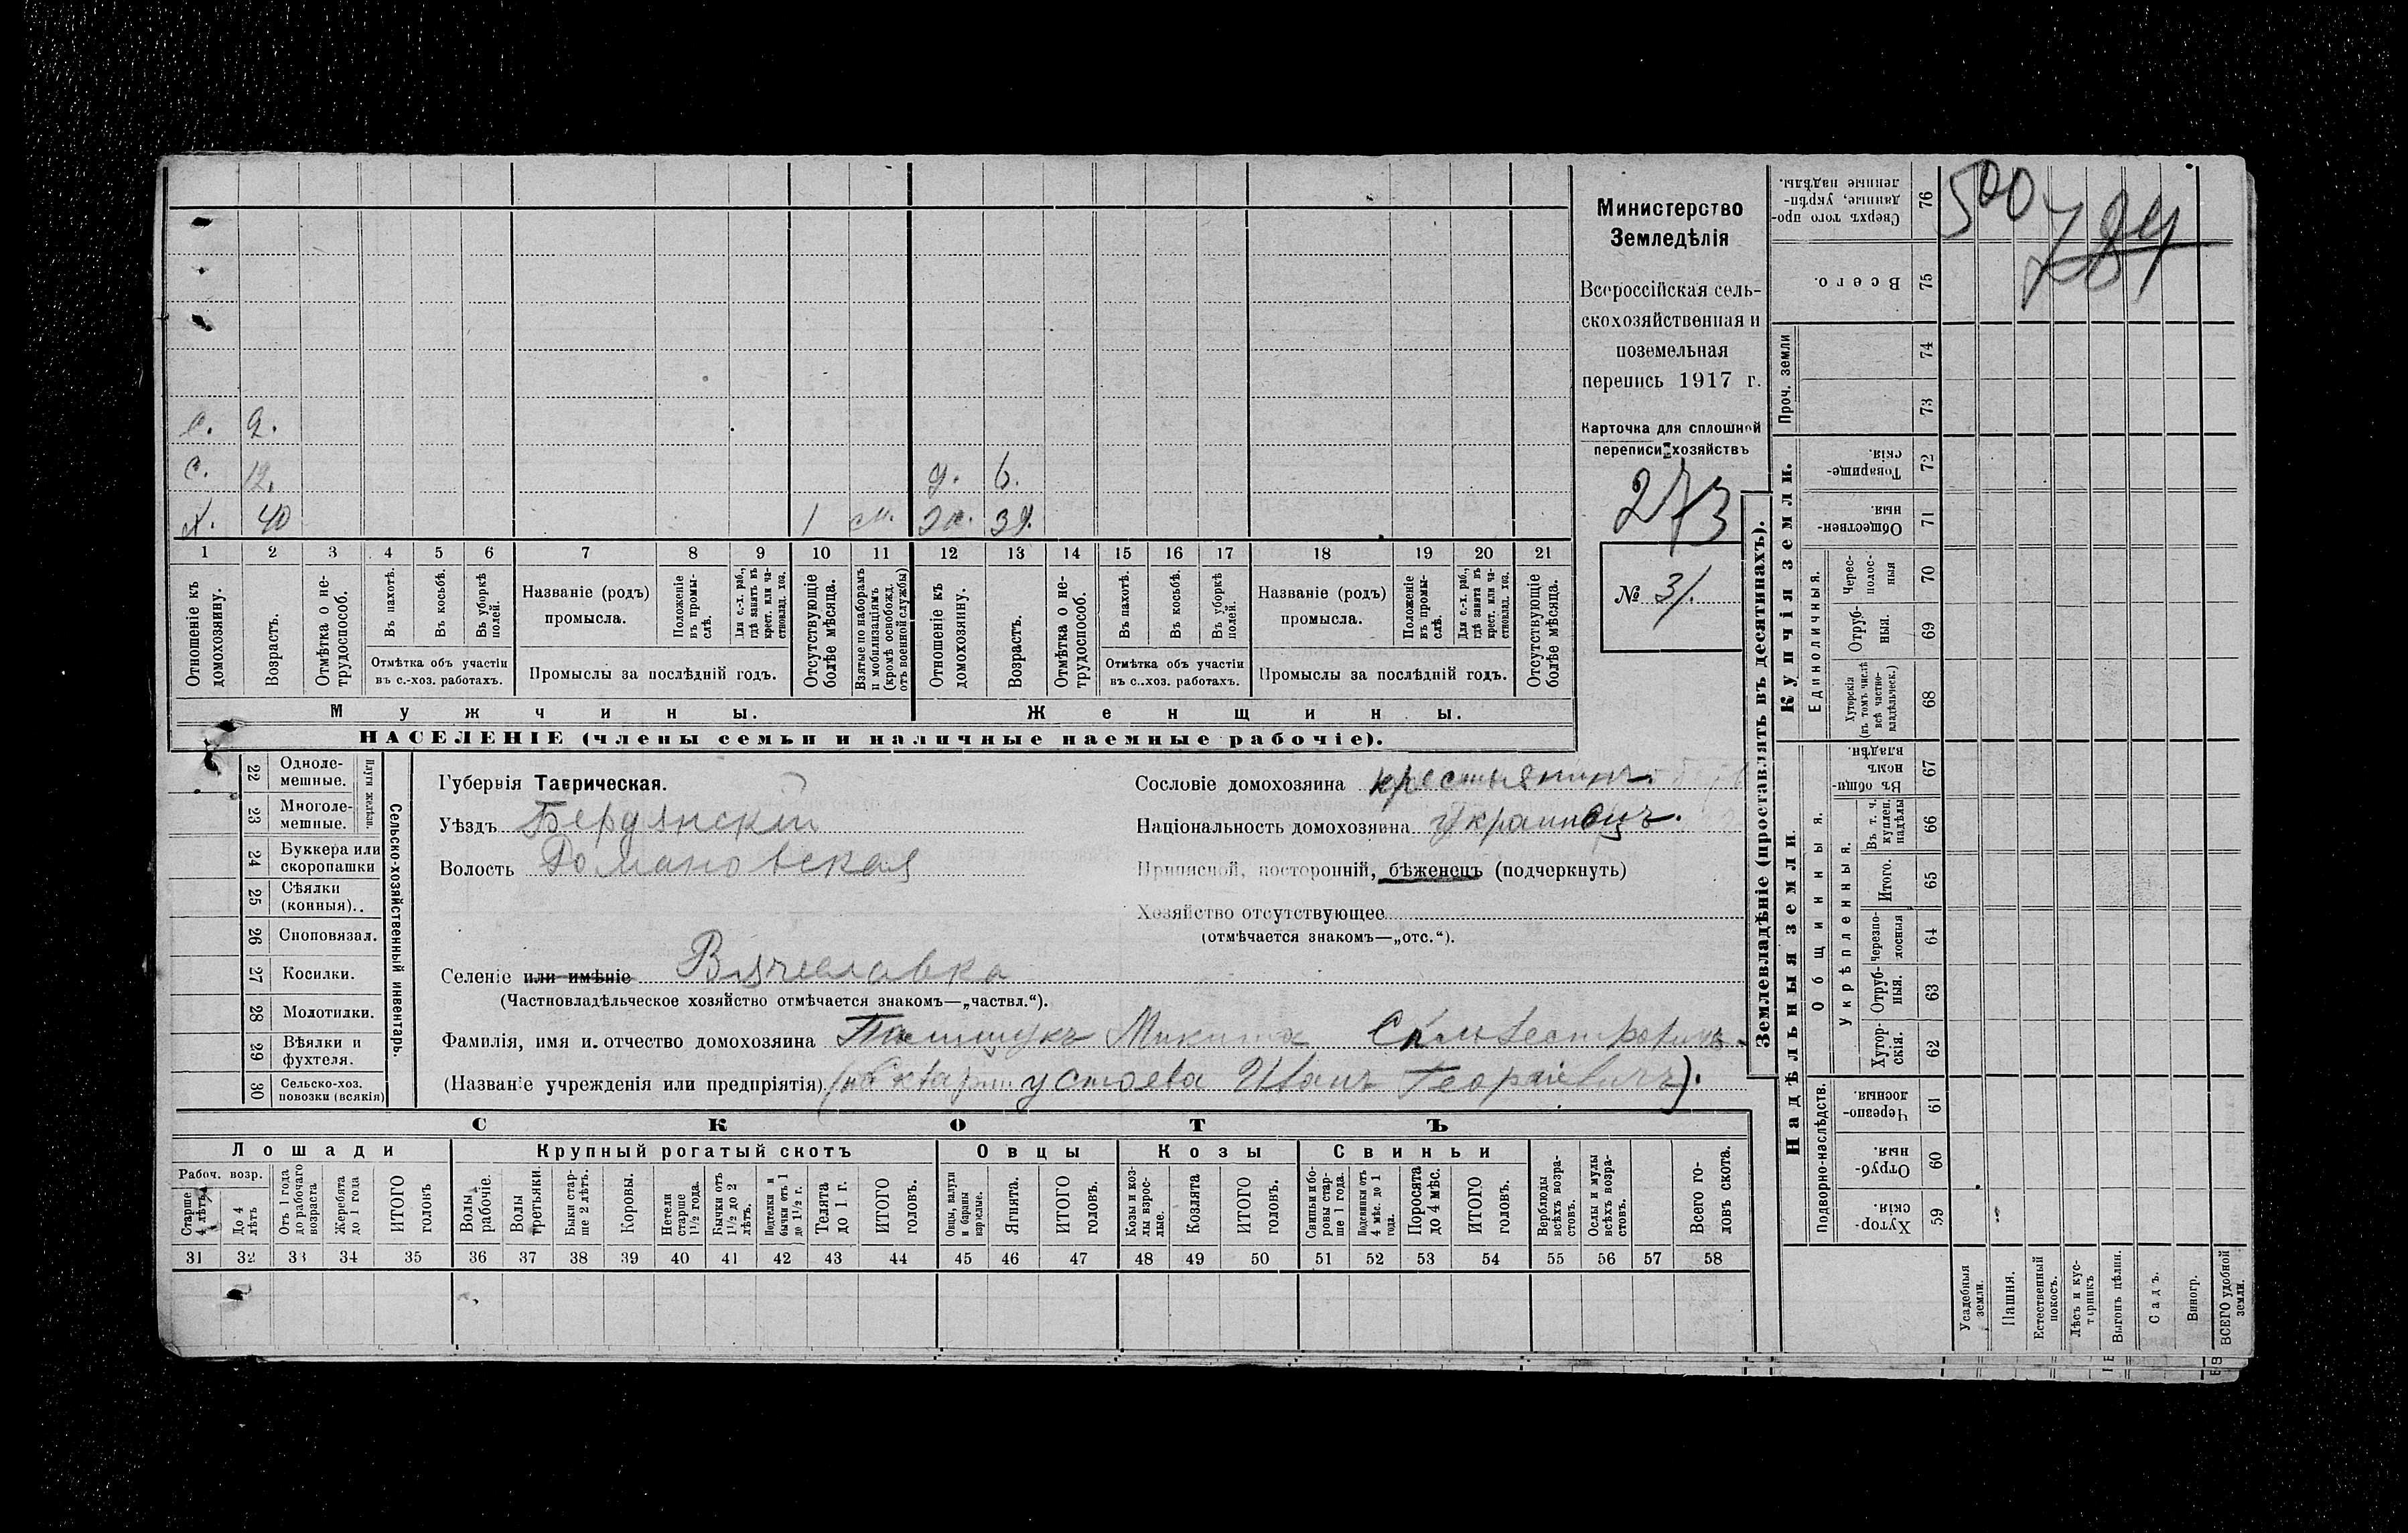 с. 9.
с. 12. д. 6.
х. 40 1 м. 39.
1 2 3 4 5 6 7 8 9 10 11 12 13 14 15 16 17 18 19 20 21
Отношеніе къ домохозяину.
Возрастъ.
Отмѣтка о не-
трудоспособ.
Въ пахотѣ.
Въ косьбѣ.
Въ уборкѣ
полей.
Отмѣтка объ участіи
въ с.-хоз. работахъ.
Названіе (родъ)
промысла.
Положеніе
въ промы-
слѣ.
Для с.-х. раб.,
гдѣ занятъ въ
крест. или ча-
стновлад. хоз.
Промыслы за послѣдній годъ.
Отсутствующіе
болѣе мѣсяца.
Взятые по наборамъ
и мобилизаціямъ
(кромѣ освобожд.
отъ военной службы)
Отношеніе къ
домохозяину.
Возрастъ.
Отмѣтка о не-
трудоспособ.
Въ пахотѣ.
Въ косьбѣ.
Въ уборкѣ
полей.
Отмѣтка объ участіи
въ с..хоз. работахъ.
Названіе (родъ)
промысла.
Положеніе
въ промы-
слѣ.
Для с.-х. раб.,
гдѣ занята въ
крест. или ча-
стновлад. хоз.
Промыслы за послѣдній годъ.
Отсутствующіе
болѣе мѣсяца.
Мужчины.
Женщины.
НАСЕЛЕНІЕ (члены семьи и наличные наемные рабочіе).
Министерство
Земледѣлія
Всероссійская сель-
скохозяйственная и
поземельная
перепись 1917 г.
Карточка для сплошной
переписи хозяйствъ
273
№ 31.
22 Одноле-
мешные.
23 Многоле-
мешные.
Плуги желѣзн.
24 Буккера или
скоропашки
25 Сѣялки
(конныя)..
26 Сноповязал.
27 Косилки.
28 Молотилки.
29 Вѣялки и
фухтеля.
30 Сельско-хоз.
повозки (всякія)
Сельско-хозяйственный инвентарь.
Губернія Таврическая.
Уѣздъ Бердянскій
Волость Романовская
Селеніе или имѣніе Вячеславка
(Частновладѣльческое хозяйство отмѣчается знакомъ—„частвл.“).
Сословіе домохозяина крестьянинъ.
Національность домохозяина Украинецъ.
Приписной, посторонній, бѣженецъ (подчеркнуть)
Хозяйство отсутствующее
(отмѣчается знакомъ—„отс.“).
Фамилія, имя и. отчество домохозяина Микита Сильвестровичъ.
(Названіе учрежденія или предпріятія) Иванъ Георгіевичъ).
СКОТЪ
Лошади
Рабоч. возр.
Старше
4 лѣтъ
До 4
лѣтъ
Отъ 1 года
до рабочаго
возраста
Жеребята
до 1 года
ИТОГО
головъ
Крупный рогатый скотъ
Волы
рабочіе.
Волы
третьяки.
Быки стар-
ше 2 лѣтъ.
Коровы.
Нетели
старше
1½ года.
Бычки отъ
1½ до 2
лѣтъ.
Подтелки и
бычки, отъ 1
до 1½ г.
Телята
до 1 г.
ИТОГО
головъ.
Овцы
Овцы, валухи
и бараны
взрослые.
Ягнята.
ИТОГО
головъ.
Козы
Козы и коз-
лы взрос-
лые.
Козлята
ИТОГО
головъ.
Свиньи
Свиньи и бо-
ровы стар-
ше 1 года.
Подсвинки отъ
4 мѣс. до 1
года.
Поросята
до 4 мѣс.
ИТОГО
головъ.
Верблюды
всѣхъ возра-
стовъ.
Ослы и мулы
всѣхъ возра-
стовъ.
Всего го-
ловъ скота.
31 32 33 34 35 36 37 38 39 40 41 42 43 44 45 46 47 48 49 50 51 52 53 54 55 56 57 58
Землевладѣніе (проставлять въ десятинахъ).
500
784
76 Сверхъ того про-
данные, укрѣп-
ленные надѣлы.
75 Всего.
Проч. земли
74
73
Купчія земли.
72 Товарище-
скія.
71 Обществен-
ныя.
Единоличныя.
70 Черес-
полос-
ныя
69 Отруб-
ныя.
68 Хуторскія
(въ томъ числѣ
всѣ частно-
владѣльческ.)
Надѣльныя земли.
Общинныя.
67 Въ общин-
номъ
владѣн.
Укрѣпленныя.
66 Въ т. ч.
куплен.
надѣлы
65 Итого.
64 Черезпо-
лосныя
63 Отруб-
ныя.
62 Хутор-
скія.
Подворно-наслѣдств.
61 Черезпо-
лосныя.
60 Отруб-
ныя.
59 Хутор-
скія.
Усадебныя
земли.
Пашня.
Естественный
покосъ.
Лѣсъ и кус-
тарникъ
Выгонъ цѣлин.
Садъ.
Виногр.
ВСЕГО удобной
земли.